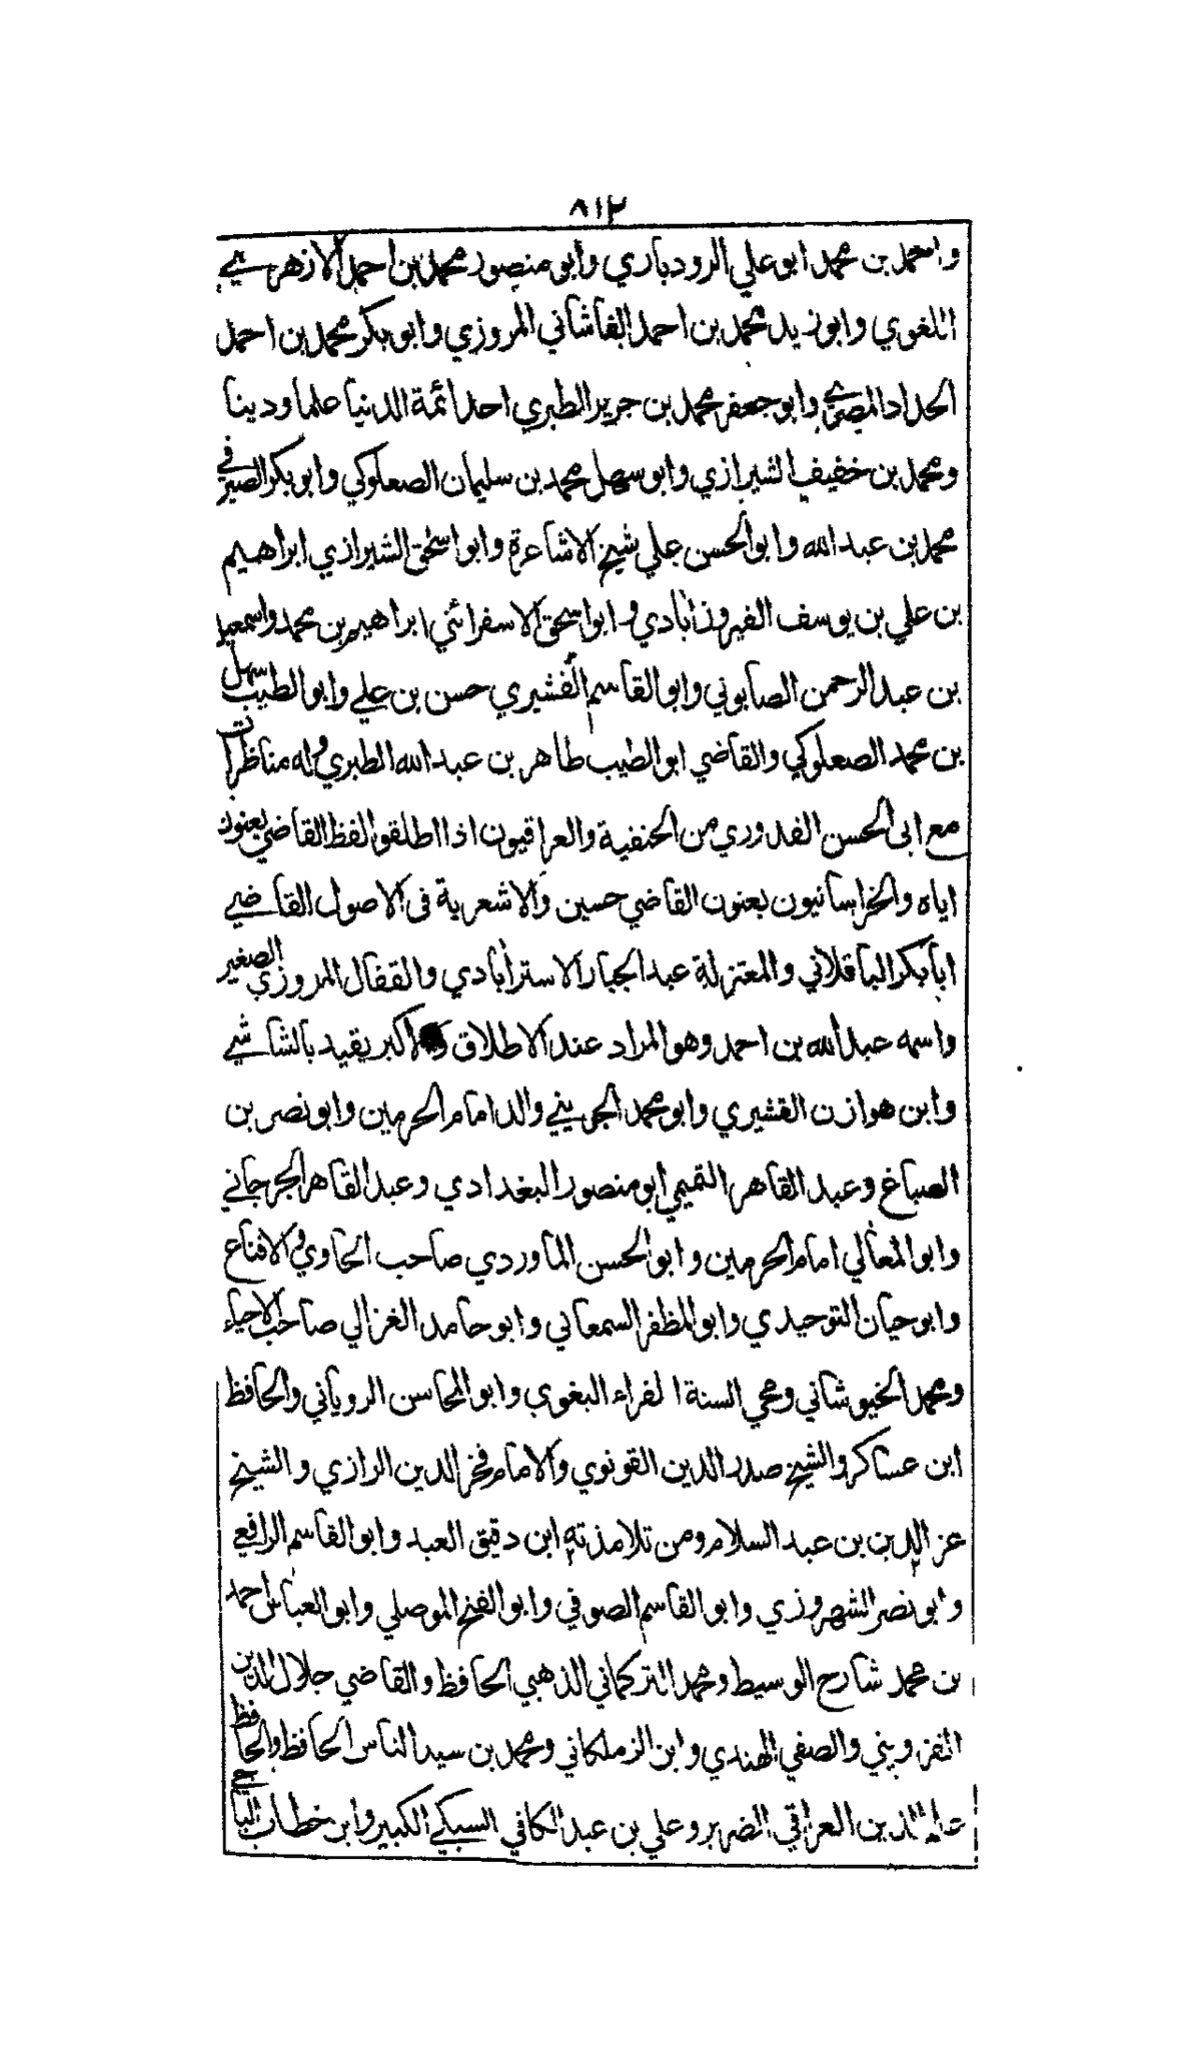 ٨١٢
واحمد بن محمد ابو علي الرودباري وابو منصور محمد بن احمد الازهري
اللغوي وابو زيد محمد بن احمد القاشاني المروزي وابو بكر محمد بن احمد
الحداد المصري وابو جعفر محمد بن جرير الطبري احد ائمة الدنيا علما ودينا
ومحمد بن خفيف الشيرازي وابو سهل محمد بن سليمان الصعلوكي وابو بكر الصيرفي
محمد بن عبد الله وابو الحسن علي شيخ الاشاعرة وابو اسحق الشيرازي ابراهيم
بن علي بن يوسف الفيروزابادي وابو اسحق الاسفرائني ابراهيم بن محمد واسمعيل
بن عبد الرحمن الصابوني وابو القاسم القشيري حسن بن علي وابو الطيب سهل
بن محمد الصعلوكي والقاضي ابو الطيب طاهر بن عبد الله الطبري وله مناظرات
مع ابى الحسن القدوري من الحنفية والعراقيون اذا اطلقوا لفظ القاضي يعنون
اياه والخراسانيون يعنون القاضي حسين والاشعرية فى الاصول القاضي
ابا بكر الباقلاني والمعتزلة عبد الجبار الاسترابادي والقفال المروزي الصغير
واسمه عبد الله بن احمد وهو المراد عند الاطلاق والاكبر يقيد بالشاشي
وابن هوازن القشيري وابو محمد الجويني والد امام الحرمين وابو نصر بن
الصباغ وعبد القاهر التميمي ابو منصور البغدادي وعبد القاهر الجرجاني
وابو المعالي امام الحرمين وابو الحسن الماوردي صاحب الحاوي والاقناع
وابو حيان التوحيدي وابو المظفر السمعاني وابو حامد الغزالي صاحب الاحياء
ومحمد الخبوشاني ومحي السنة الفراء البغوي وابو المحاسن الروياني والحافظ
ابن عساكر والشيخ صدر الدين القونوي والامام فخر الدين الرازي والشيخ
عز الدين بن عبد السلام ومن تلامذته ابن دقيق العبد وابو القاسم الرافعي
وابو نصر الشهروزي وابو القاسم الصوفي وابو الفتح الموصلي وابو العباس احمد
بن محمد شارح الوسيط ومحمد التركماني الذهبي الحافظ والقاضي جلال الدين
القزويني والصفي الهندي وابن الزملكاني ومحمد بن سيد الناس الحافظ والحافظ
علم الدين العراقي الضرير وعلي بن عبد الكافي السبكي الكبير وابن خطاب الباجي